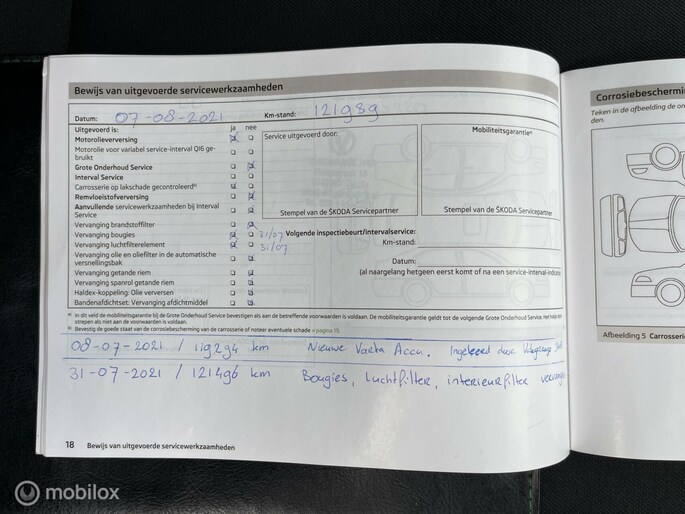 Bewijs van uitgevoerde servicewerkzaamheden
Datum: 07-08-2021 Km-stand: 121989
Uitgevoerd is: ja nee
Motorolieverversing
Motorolie voor variabel service-interval QI6 ge-
bruikt
Grote Onderhoud Service
Interval Service
Carrosserie op lakschade gecontroleerd
Remvloeistofverversing
Aanvullende servicewerkzaamheden bij Interval
Service
Vervanging brandstoffilter
Vervanging bougies 31/07
Vervanging luchtfilterelement 31/07
Vervanging olie en oliefilter in de automatische
versnellingsbak
Vervanging getande riem
Vervanging spanrol getande riem
Haldex-koppeling: Olie verversen
Bandenafdichtset: Vervanging afdichtmiddel
Service uitgevoerd door:
Stempel van de ŠKODA Servicepartner
Mobiliteitsgarantie
Stempel van de ŠKODA Servicepartner
Volgende inspectiebeurt/intervalservice:
Km-stand:
Datum:
(al naargelang hetgeen eerst komt of na een service-interval-indicatie
In dit veld de mobiliteitsgarantie bij de Grote Onderhoud Service bevestigen als aan de betreffende voorwaarden is voldaan. De mobiliteitsgarantie geldt tot de volgende Grote Onderhoud Service. Het
strepen als niet aan de voorwaarden is voldaan.
Bevestig de goede staat van de corrosiebescherming van de carrosserie of noteer eventuele schade
08-07-2021 / 119294 km Nieuwe Varta Accu. Ingeleerd door
31-07-2021 / 121496 km Bougies, luchtfilter, interieurfilter
18 Bewijs van uitgevoerde servicewerkzaamheden
Corrosiebeschermin
Teken in de afbeelding de on
den.
Afbeelding 5 Carrosserie
mobilox